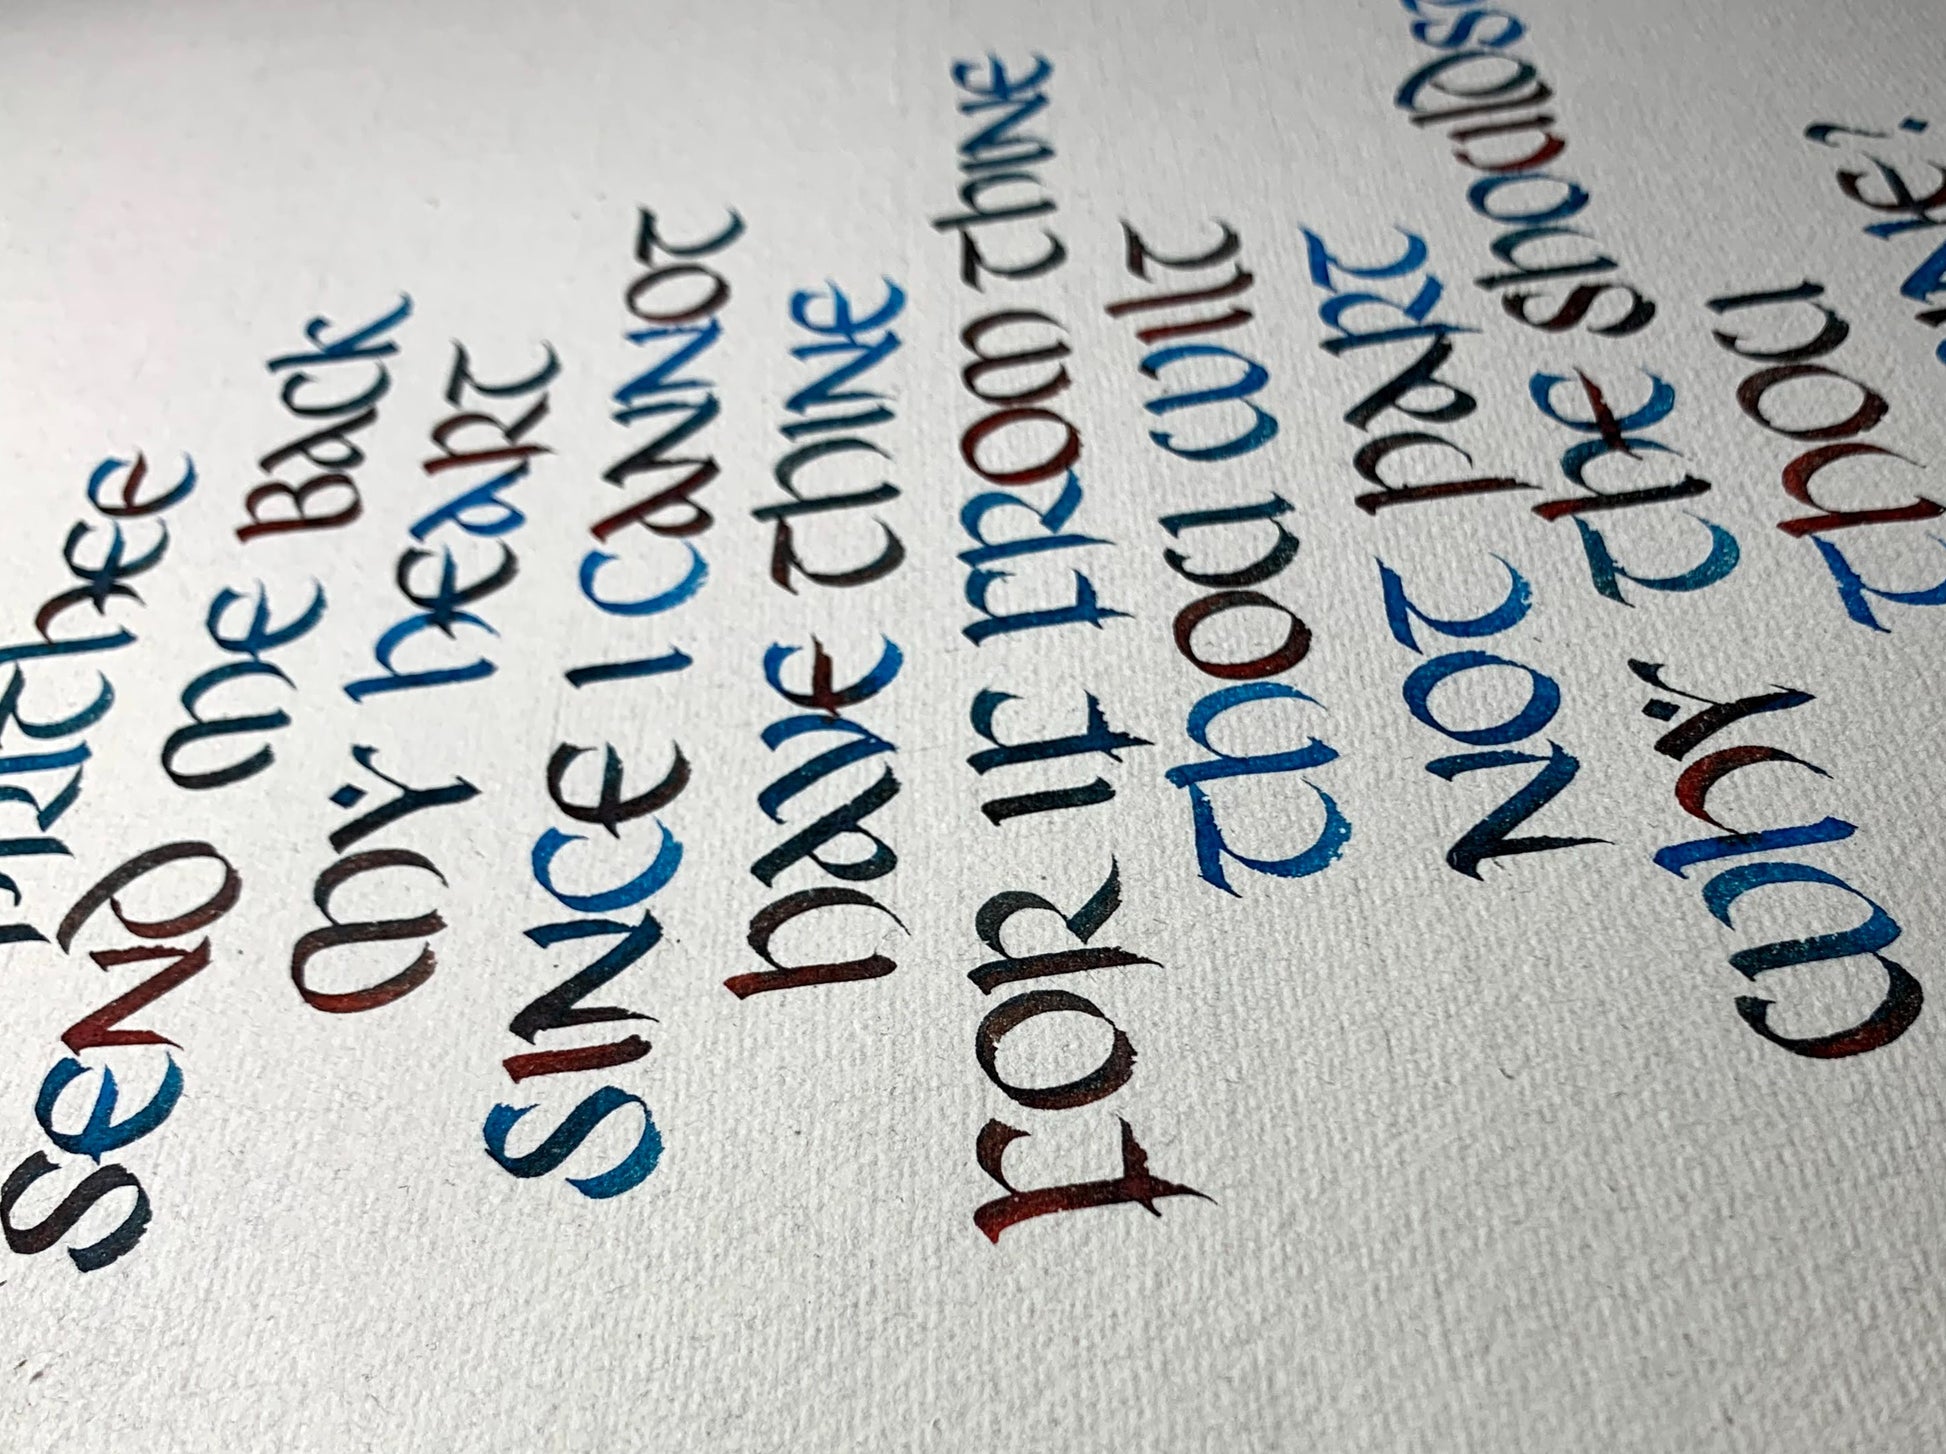 PRITHEE
SEND ME BACK
MY HEART
SINCE I CANNOT
HAVE THINE
FOR IF FROM THINE
THOU WILT
NOT PART
WHY THE SHOULDES
THOU